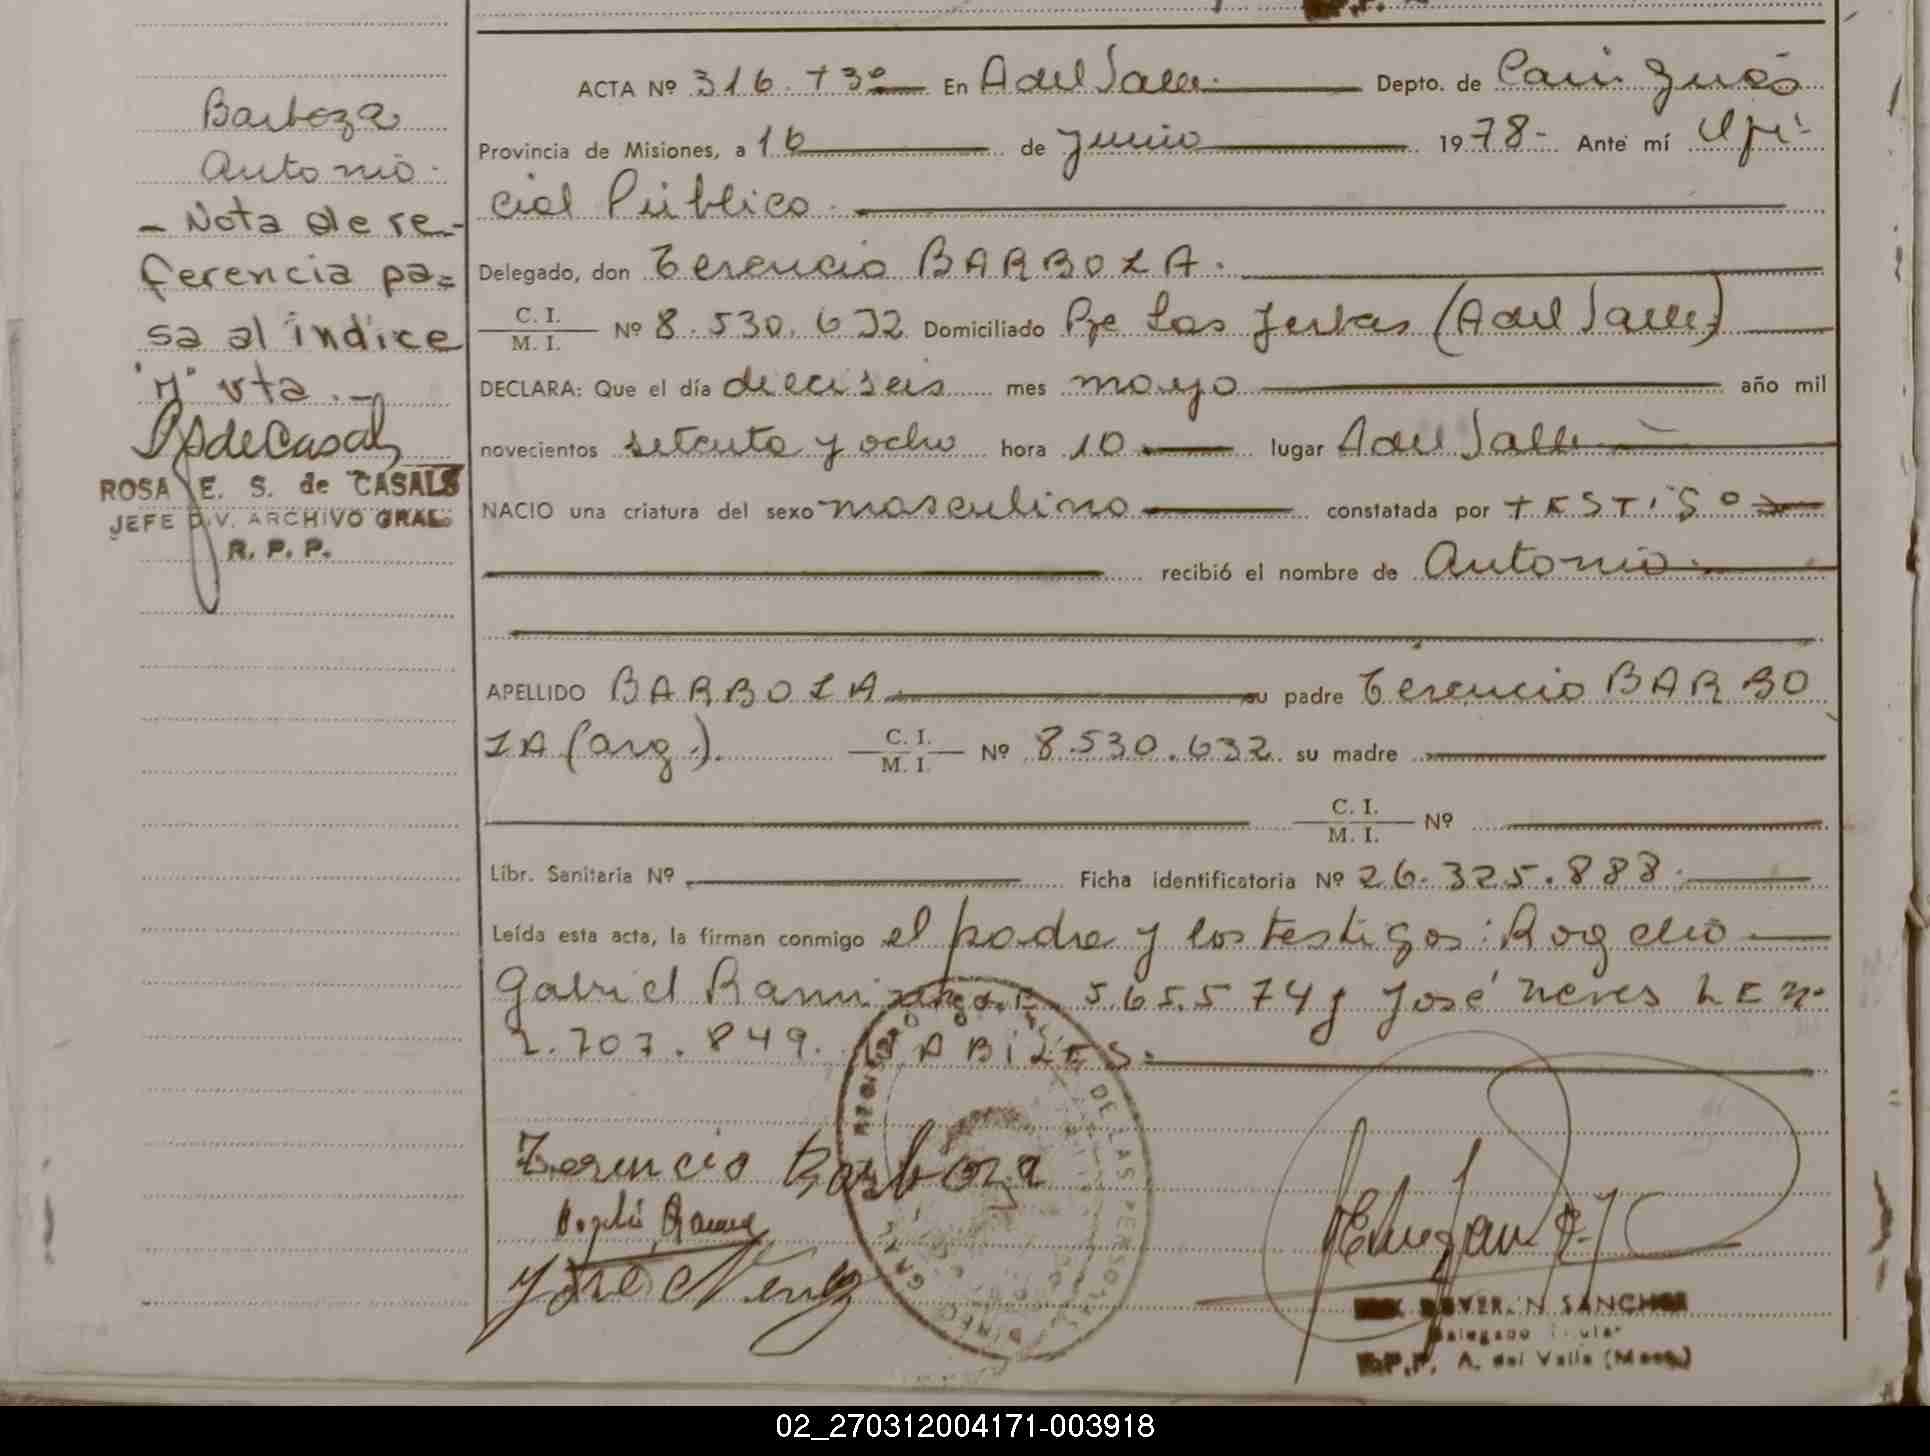 Barboza
Antonio.
- Nota de re-
ferencia pa=
sa al indice
"M" vta.-
ROSA E. S. de CASALS
JEFE DIV. ARCHIVO GRAL.
R. P. P.
ACTA Nº 316. Tº 3º En A del Valle. Depto. de Cain guás
Provincia de Misiones, a 16 de junio 1978- Ante mí Ofi-
cial Público.
Delegado, don Terencio BARBOZA.
C. I.
M. I. Nº 8.530.632 Domiciliado Pje Las Yerbas (A del Valle)
DECLARA: Que el día dieciseis mes mayo año mil
novecientos setenta y ocho hora 10 lugar A del Valle
NACIO una criatura del sexo masculino constatada por TESTIGO
recibió el nombre de Antonio.
APELLIDO BARBOZA su padre Terencio BARBO
ZA (arg.). C. I.
M. I. Nº 8.530.632 su madre
C. I.
M. I. Nº
Libr. Sanitaria Nº Ficha identificatoria Nº 26.325.888.
Leída esta acta, la firman conmigo el padre y los testigos: Rogelio
Gabriel Ramirez 5.655.74 y José neves L E nº
2.707.849. HABILES.
Terencio Barboza
DE LAS PERSONAS
SANCHEZ
Delegado Titular
R.P.P. A. del Valle (Mnes.)
02_270312004171-003918